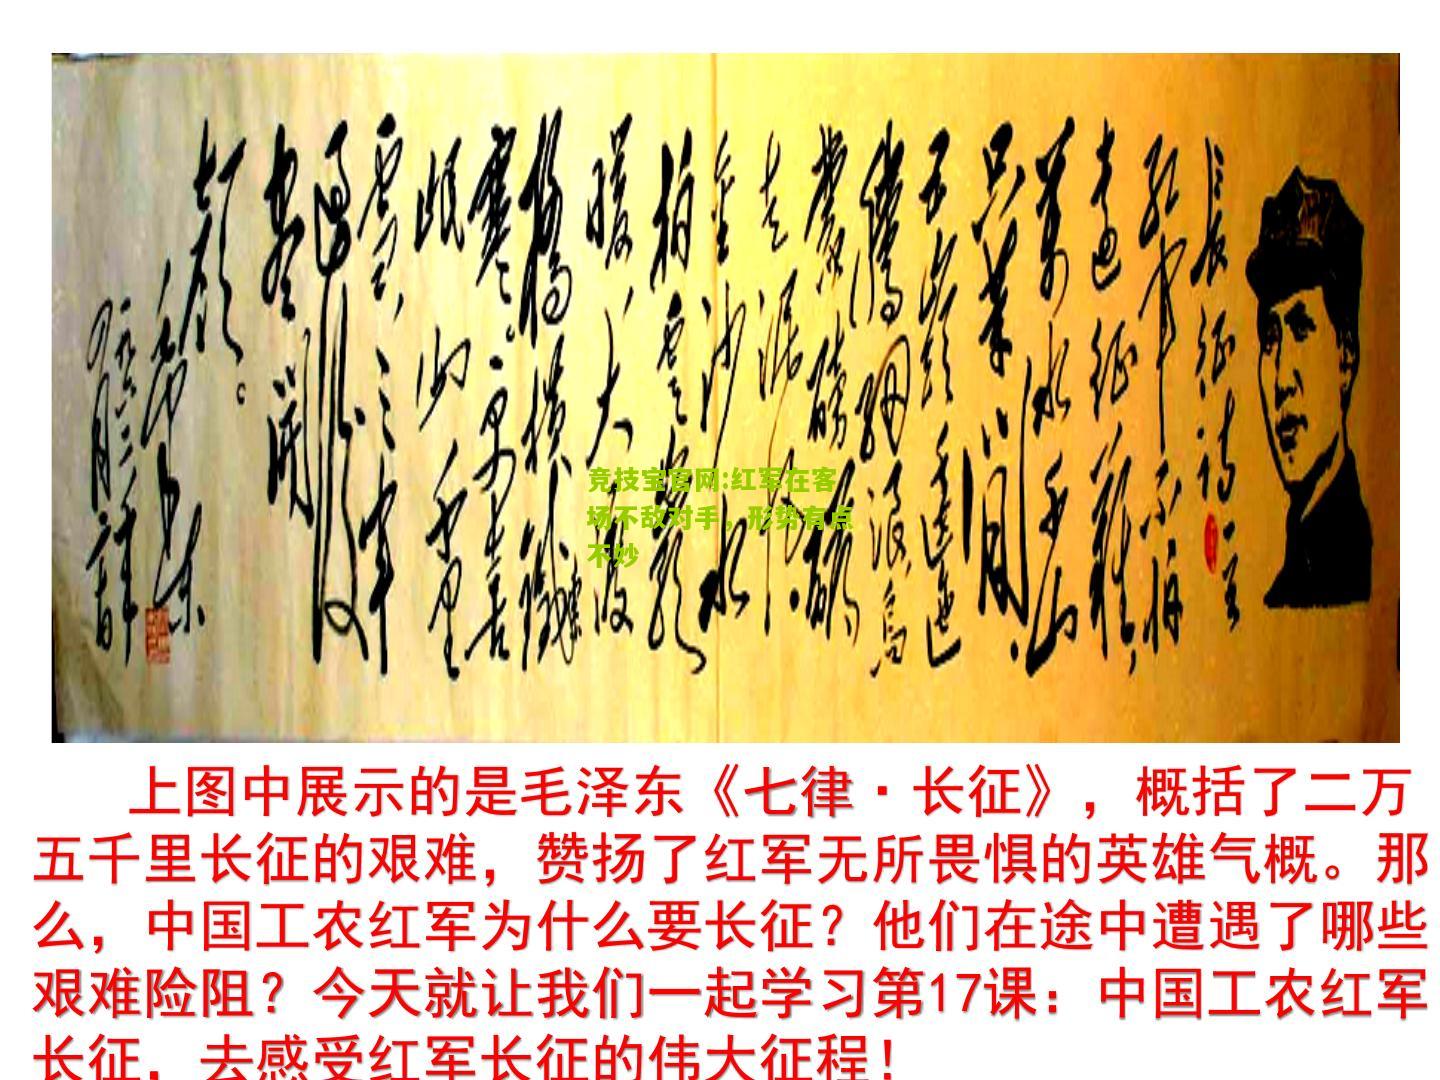 长征诗一首
红军不怕
远征难,
万水千山
只等闲。
五岭逶迤
腾细浪,乌
蒙磅礴
走泥丸。
金沙水
拍云崖
暖,大渡
桥横铁索
寒。更喜
岷山千里
雪,三军
过后
尽开
颜。
毛泽东
竞技宝官网:红军在客
场不敌对手,形势有点
不妙
上图中展示的是毛泽东《七律·长征》,概括了二万
五千里长征的艰难,赞扬了红军无所畏惧的英雄气概。那
么,中国工农红军为什么要长征?他们在途中遭遇了哪些
艰难险阻?今天就让我们一起学习第17课:中国工农红军
长征,去感受红军长征的伟大征程!